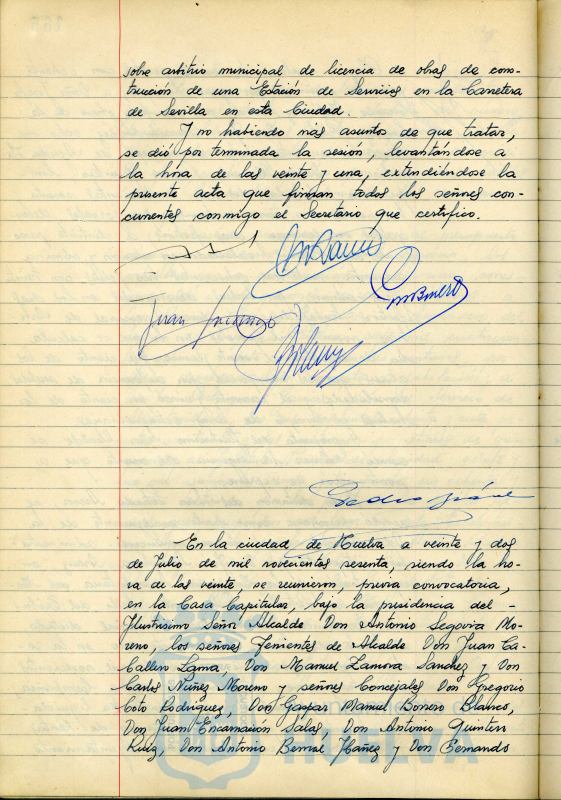 sobre arbitrio municipal de licencia de obras de cons-
trucción de una Estación de Servicios en la Carretera
de Sevilla en esta Ciudad.
Y no habiendo más asuntos de que tratar,
se dió por terminada la sesión, levantándose a
la hora de las veinte y una, extendiéndose la
presente acta que firman todos los señores con-
currentes conmigo el Secretario que certifico.
Juan
En la ciudad de Huelva a veinte y dos
de Julio de mil novecientos sesenta, siendo la ho-
ra de las veinte, se reunieron, previa convocatoria,
en la Casa Capitular, bajo la presidencia del -
Ilustrisimo Señor Alcalde Don Antonio Segovia Mo-
reno, los señores Tenientes de Alcalde Don Juan Ca-
ballero Lama, Don Manuel Zamora Sanchez y Don
Carlos Nuñez Moreno y señores Concejales Don Gregorio
Coto Rodriguez, Don Gaspar Manuel Bonero Blanco,
Don Juan Encarnación Salas, Don Antonio Quintero
Ruiz, Don Antonio Bernal Ybañez y Don Fernando
HUELVA